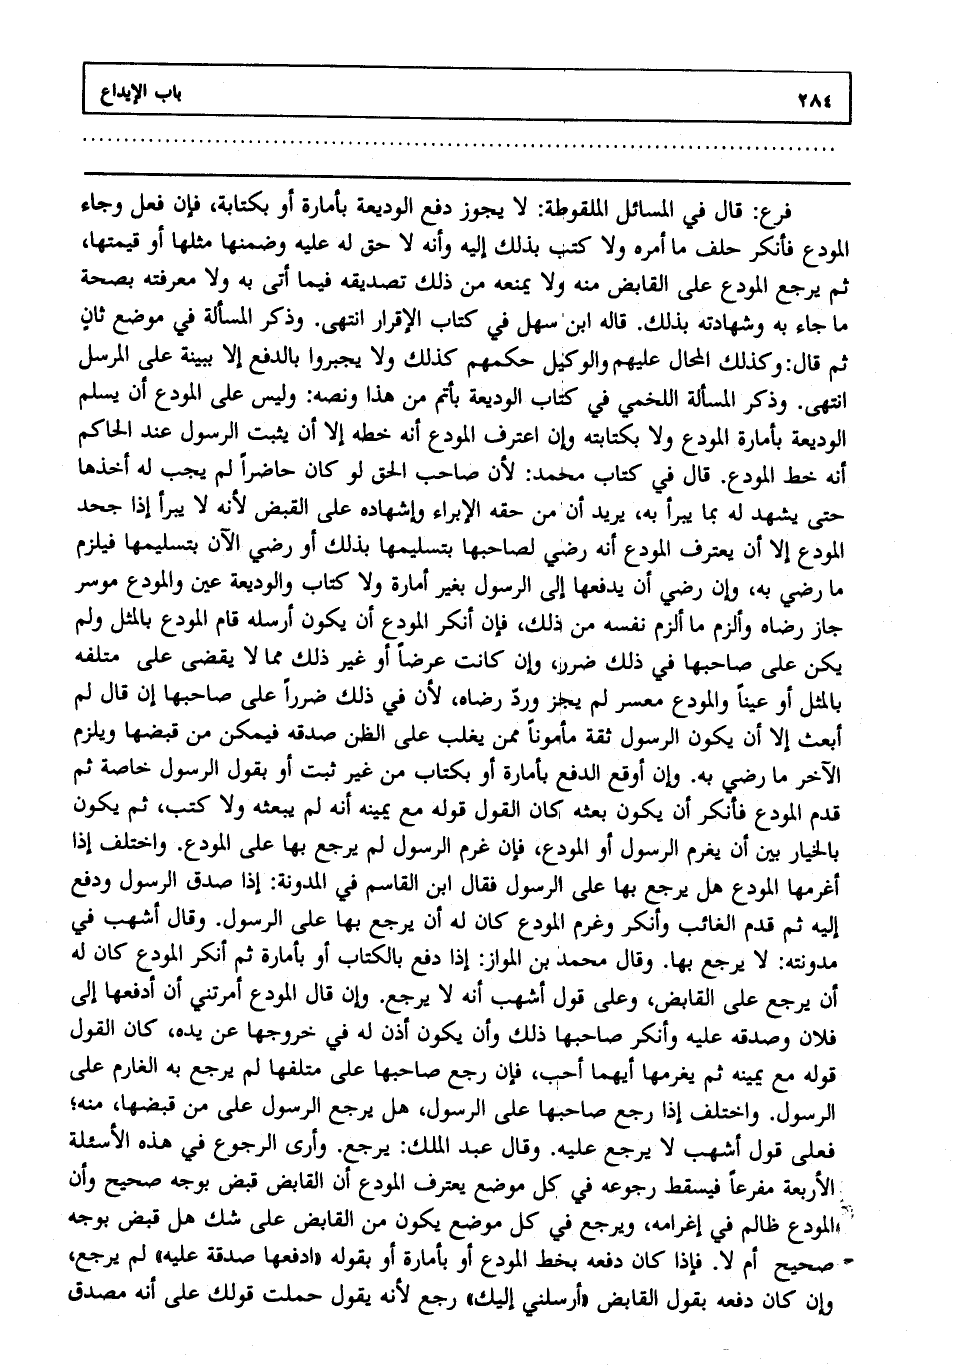 ٢٨٤
باب الإيداع
فرع: قال في المسائل الملقوطة: لا يجوز دفع الوديعة بأمارة أو بكتابة، فإن فعل وجاء
المودع فأنكر حلف ما أمره ولا كتب بذلك إليه وأنه لا حق له عليه وضمنها مثلها أو قيمتها،
ثم يرجع المودع على القابض منه ولا يمنعه من ذلك تصديقه فيما أتى به ولا معرفته بصحة
ما جاء به وشهادته بذلك. قاله ابن سهل في كتاب الإقرار انتهى. وذكر المسألة في موضع ثانٍ
ثم قال: وكذلك المحال عليهم والوكيل حكمهم كذلك ولا يجبروا بالدفع إلا ببينة على المرسل
انتهى. وذكر المسألة اللخمي في كتاب الوديعة بأتم من هذا ونصه: وليس على المودع أن يسلم
الوديعة بأمارة المودع ولا بكتابته وإن اعترف المودع أنه خطه إلا أن يثبت الرسول عند الحاكم
أنه خط المودع. قال في كتاب محمد: لأن صاحب الحق لو كان حاضراً لم يجب له أخذها
حتى يشهد له بما يبرأ به، يريد أن من حقه الإبراء وإشهاده على القبض لأنه لا يبرأ إذا جحد
المودع إلا أن يعترف المودع أنه رضي لصاحبها بتسليمها بذلك أو رضي الآن بتسليمها فيلزم
ما رضي به، وإن رضي أن يدفعها إلى الرسول بغير أمارة ولا كتاب والوديعة عين والمودع موسر
جاز رضاه وألزم ما ألزم نفسه من ذلك، فإن أنكر المودع أن يكون أرسله قام المودع بالمثل ولم
يكن على صاحبها في ذلك ضرر، وإن كانت عرضاً أو غير ذلك مما لا يقضى على متلفه
بالمثل أو عيناً والمودع معسر لم يجز وردّ رضاه، لأن في ذلك ضرراً على صاحبها إن قال لم
أبعث إلا أن يكون الرسول ثقة مأموناً ممن يغلب على الظن صدقه فيمكن من قبضها ويلزم
الآخر ما رضي به. وإن أوقع الدفع بأمارة أو بكتاب من غير ثبت أو بقول الرسول خاصة ثم
قدم المودع فأنكر أن يكون بعثه كان القول قوله مع يمينه أنه لم يبعثه ولا كتب، ثم يكون
بالخيار بين أن يغرم الرسول أو المودع، فإن غرم الرسول لم يرجع بها على المودع. واختلف إذا
أغرمها المودع هل يرجع بها على الرسول فقال ابن القاسم في المدونة: إذا صدق الرسول ودفع
إليه ثم قدم الغائب وأنكر وغرم المودع كان له أن يرجع بها على الرسول. وقال أشهب في
مدونته: لا يرجع بها. وقال محمد بن المواز: إذا دفع بالكتاب أو بأمارة ثم أنكر المودع كان له
أن يرجع على القابض، وعلى قول أشهب أنه لا يرجع. وإن قال المودع أمرتني أن أدفعها إلى
فلان وصدقه عليه وأنكر صاحبها ذلك وأن يكون أذن له في خروجها عن يده، كان القول
قوله مع يمينه ثم يغرمها أيهما أحب، فإن رجع صاحبها على متلفها لم يرجع به الغارم على
الرسول. واختلف إذا رجع صاحبها على الرسول، هل يرجع الرسول على من قبضها، منه؛
فعلى قول أشهب لا يرجع عليه. وقال عبد الملك: يرجع. وأرى الرجوع في هذه الأسئلة
الأربعة مفرعاً فيسقط رجوعه في كل موضع يعترف المودع أن القابض قبض بوجه صحيح وأن
المودع ظالم في إغرامه، ويرجع في كل موضع يكون من القابض على شك هل قبض بوجه
صحيح أم لا. فإذا كان دفعه بخط المودع أو بأمارة أو بقوله «ادفعها صدقة عليه» لم يرجع،
وإن كان دفعه بقول القابض «أرسلني إليك» رجع لأنه يقول حملت قولك على أنه مصدق